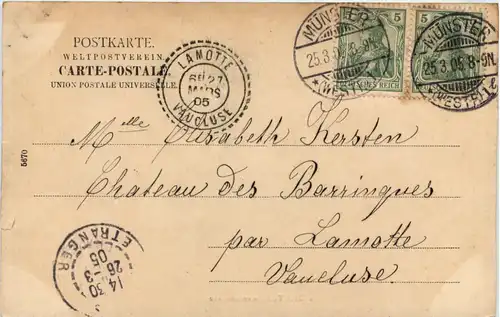 POSTKARTE.
WELTPOSTVEREIN.
CARTE-POSTALE
UNION POSTALE UNIVERSELLE.
LAMOTTE
27
MARS
05
VAUCLUSE
MÜNSTER
25.3.05.8-9N.
*(WESTF.)
5
REICH
5
MÜNSTER
25.3.05.8-9N.
(WESTF.)
5670
Mlle Elisabeth Kersten
Château des Barrinques
par Lamotte
Vaucluse.
ETRANGER
14 30
26-3
05